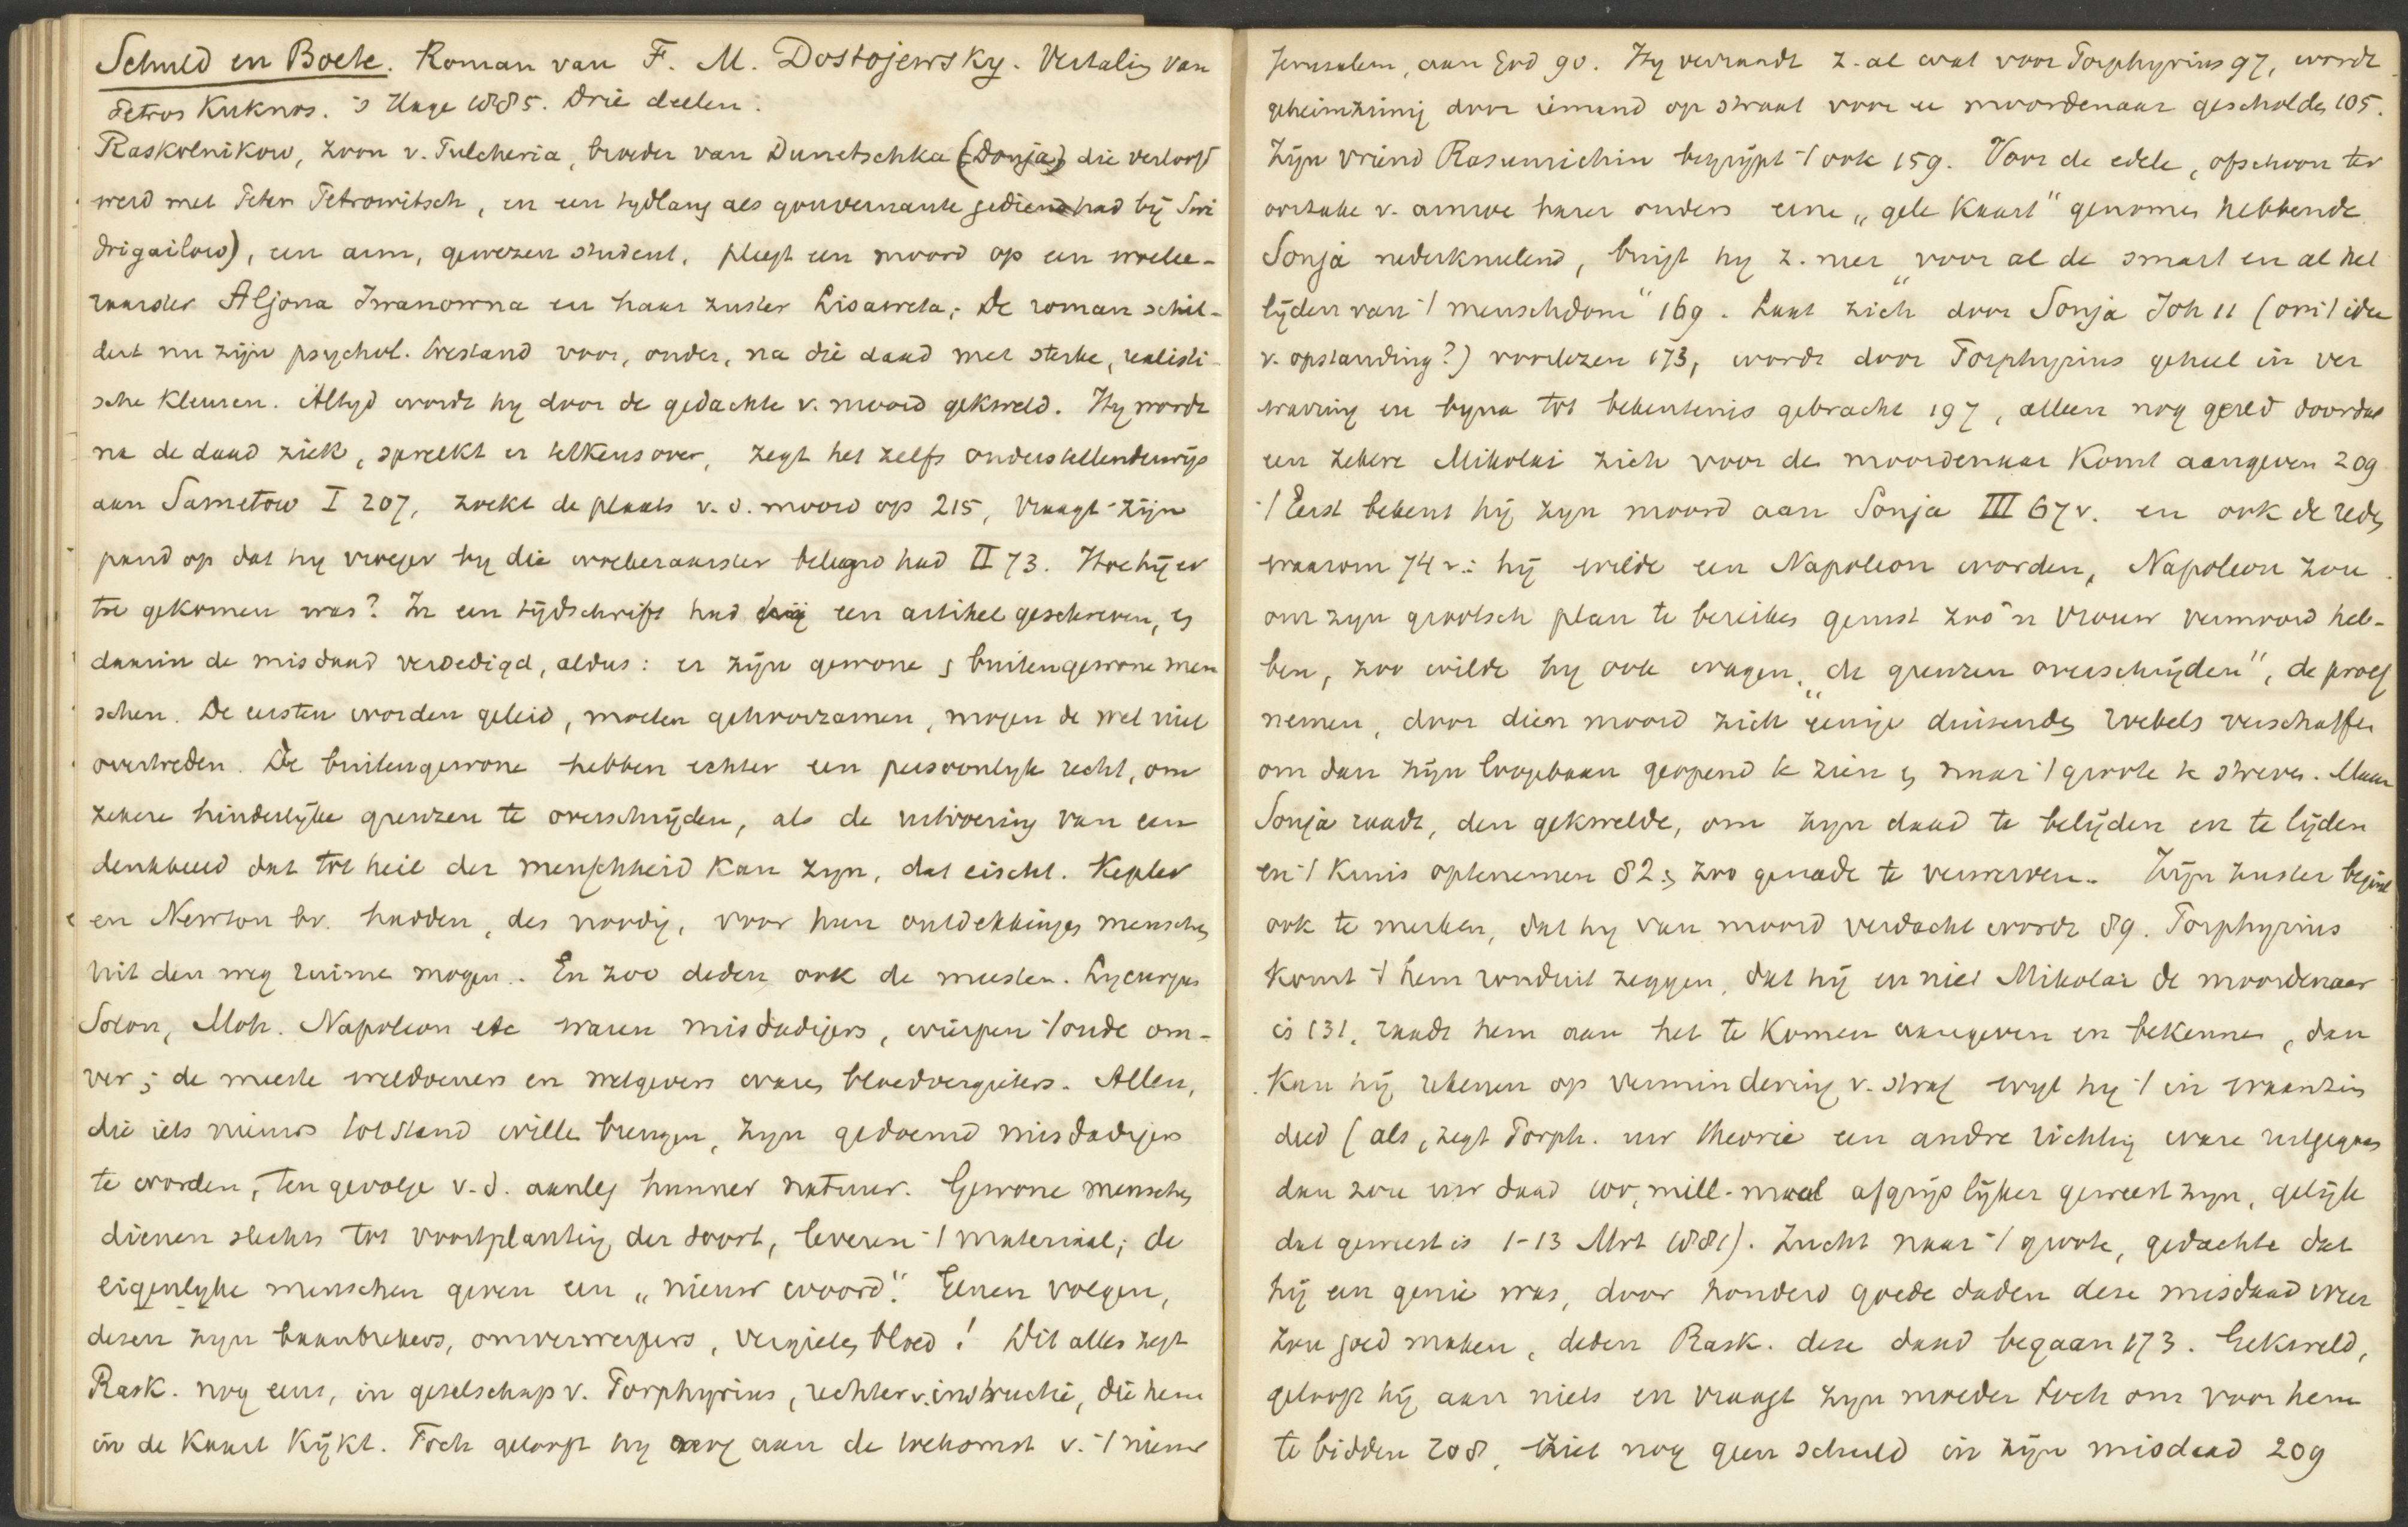 Schuld en Boete. Roman van F. M. Dostojewsky. Vertaling van
Petros Kuknos. 's Hage 1885. Drie deelen.
Raskolnikow, zoon v. Pulcheria, broeder van Dunetschka (Donja) die verloofd
werd met Peter Petrowitsch, en een tydlang als gouvernante gediend had bij Swi
drigailow), een arm, gewezen student, pleegt een moord op een woeke-
raarster Aljona Iwanowna en haar zuster Lisaweta; De roman schil-
dert nu zijn psychol. toestand voor, onder, na die daad met sterke, realisti-
sche kleuren. Altyd wordt hy door de gedachte v. moord gekweld. Hy wordt
na de daad ziek, spreekt er telkens over, zegt het zelfs onderstellenderwijs
aan Sametow I 207, zoekt de plaats v. d. moord op 215, vraagt zijn
pand op dat hy vroeger by die woekeraarster beleend had II 73. Hoe hij er
toe gekomen was? In een tijdschrift had hij een artikel geschreven, en
daarin de misdaad verdedigd, aldus: er zijn gewone en buitengewone men
schen. De eersten worden geleid, moeten gehoorzamen, mogen de wet niet
overtreden. De buitengewone hebben echter een persoonlyk recht, om
zekere hinderlyke grenzen te overschrijden, als de uitvoering van een
denkbeeld dat tot heil der menschheid kan zyn, dat eischt. Kepler
en Newton bv. hadden, des noodig, voor hun ontdekkingen menschen
uit den weg ruimen mogen. En zoo deden ook de meesten. Lycurgus
Solon, Moh. Napoleon etc waren misdadigers, wierpen 't oude om-
ver; de meeste weldoeners en wetgevers waren bloedvergieters. Allen,
die iets nieuws tot stand willen brengen, zyn gedoemd misdadigers
te worden, ten gevolge v. d. aanleg hunner natuur. Gewone menschen
dienen slechts tot voortplanting der soort, leveren 't materiaal; de
eigenlyke menschen geven een „nieuw woord". Genen volgen,
dezen zyn baanbrekers, omverwerpers, vergieten bloed! Dit alles zegt
Rask. nog eens, in gezelschap v. Porphyrius, rechter v. instructie, die hem
in de kaart kijkt. Toch gelooft hy nog aan de toekomst v. 't nieuw
Jerusalem, aan God 90. Hy verraadt z. al wat voor Porphyrius 97, wordt
geheimzinnig door iemand op straat voor een moordenaar gescholden 105.
Zijn vriend Rasumichin begrijpt 't ook 159. Voor de edele, ofschoon ter
oorzake v. armoe harer ouders eene „gele kaart" genomen hebbende
Sonja nederknielend, buigt hy z. neer „voor al de smart en al het
lijden van 't menschdom" 169. Laat zich door Sonja Joh 11 (om 't idee
v. opstanding?) voorlezen 173, wordt door Porphyrius geheel in ver
warring en byna tot bekentenis gebracht 197, alleen nog gered doordat
een zekere Mikolai zich voor de moordenaar komt aangeven 209
't Eerst bekent hij zyn moord aan Sonja III 67 v. en ook de reden
waarom 74 v.: hij wilde een Napoleon worden, Napoleon zou
om zyn grootsch plan te bereiken gerust zoo'n vrouw vermoord heb-
ben, zoo wilde hy ook wagen „de grenzen overschrijden", de proef
nemen, door dien moord zich eenige duizenden roebels verschaffen
om dan zijn loopbaan geopend te zien en naar 't groote te streven. Maar
Sonja raadt, den gekwelde, om zyn daad te belijden en te lijden
en 't kruis optenemen 82 en zoo genade te verwerven. Zijn zuster begint
ook te merken, dat hy van moord verdacht wordt 89. Porphyrius
komt 't hem ronduit zeggen, dat hij en niet Mikolai de moordenaar
is 131, raadt hem aan het te komen aangeven en bekennen, dan
kan hij rekenen op vermindering v. straf wyl hy 't in waanzin
deed (als, zegt Porph. uw theorie een andre richting ware uitgegaan
dan zou uw daad 100, mill. maal afgrijslyker geweest zyn, gelijk
dat geweest is 1-13 Mrt 1881). Zucht naar 't groote, gedachte dat
hij een genie was, door honderd goede daden deze misdaad weer
zou goed maken, deden Rask. deze daad begaan 173. Gekweld,
gelooft hij aan niets en vraagt zyn moeder toch om voor hem
te bidden 208, ziet nog geen schuld in zijn misdaad 209